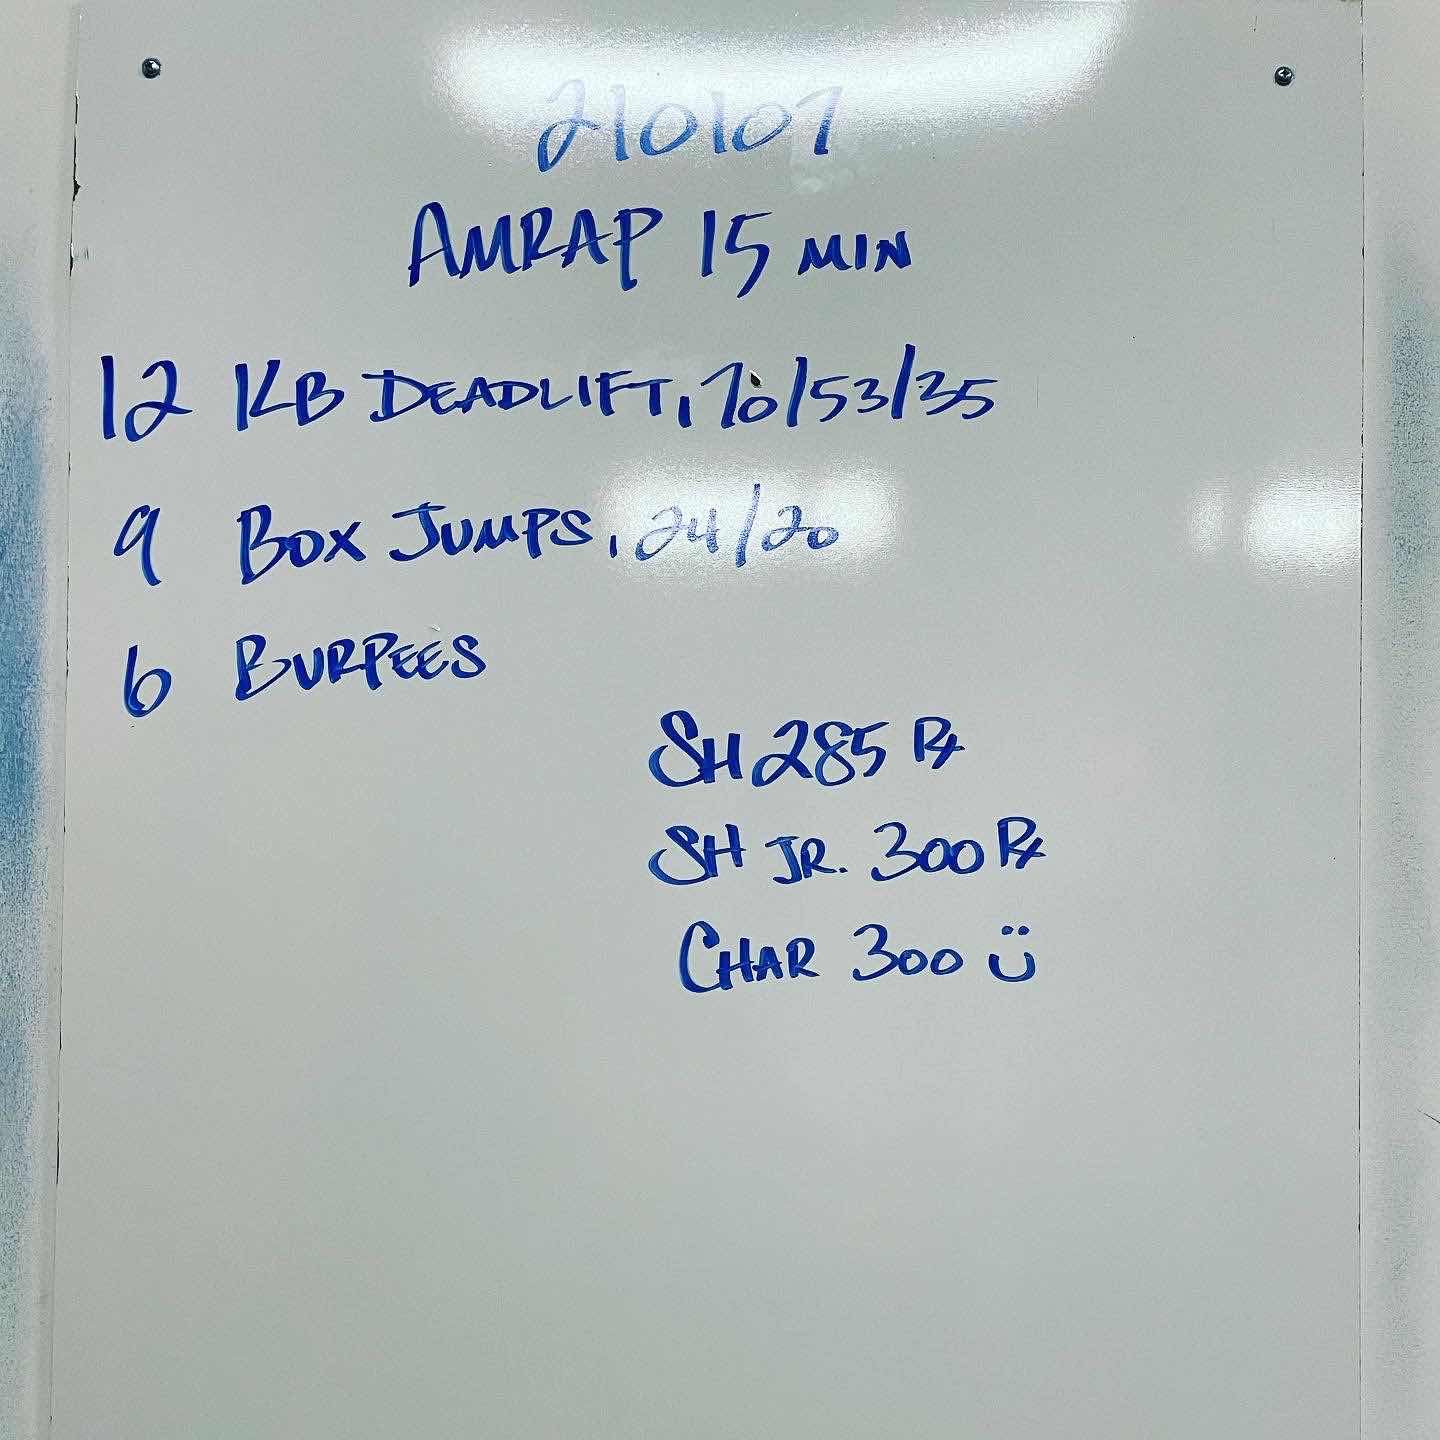 210107
AMRAP 15 MIN
12 KB DEADLIFT, 70/53/35
9 BOX JUMPS, 24/20
6 BURPEES
SH 285 ℞
SH JR. 300 ℞
CHAR 300 Ü